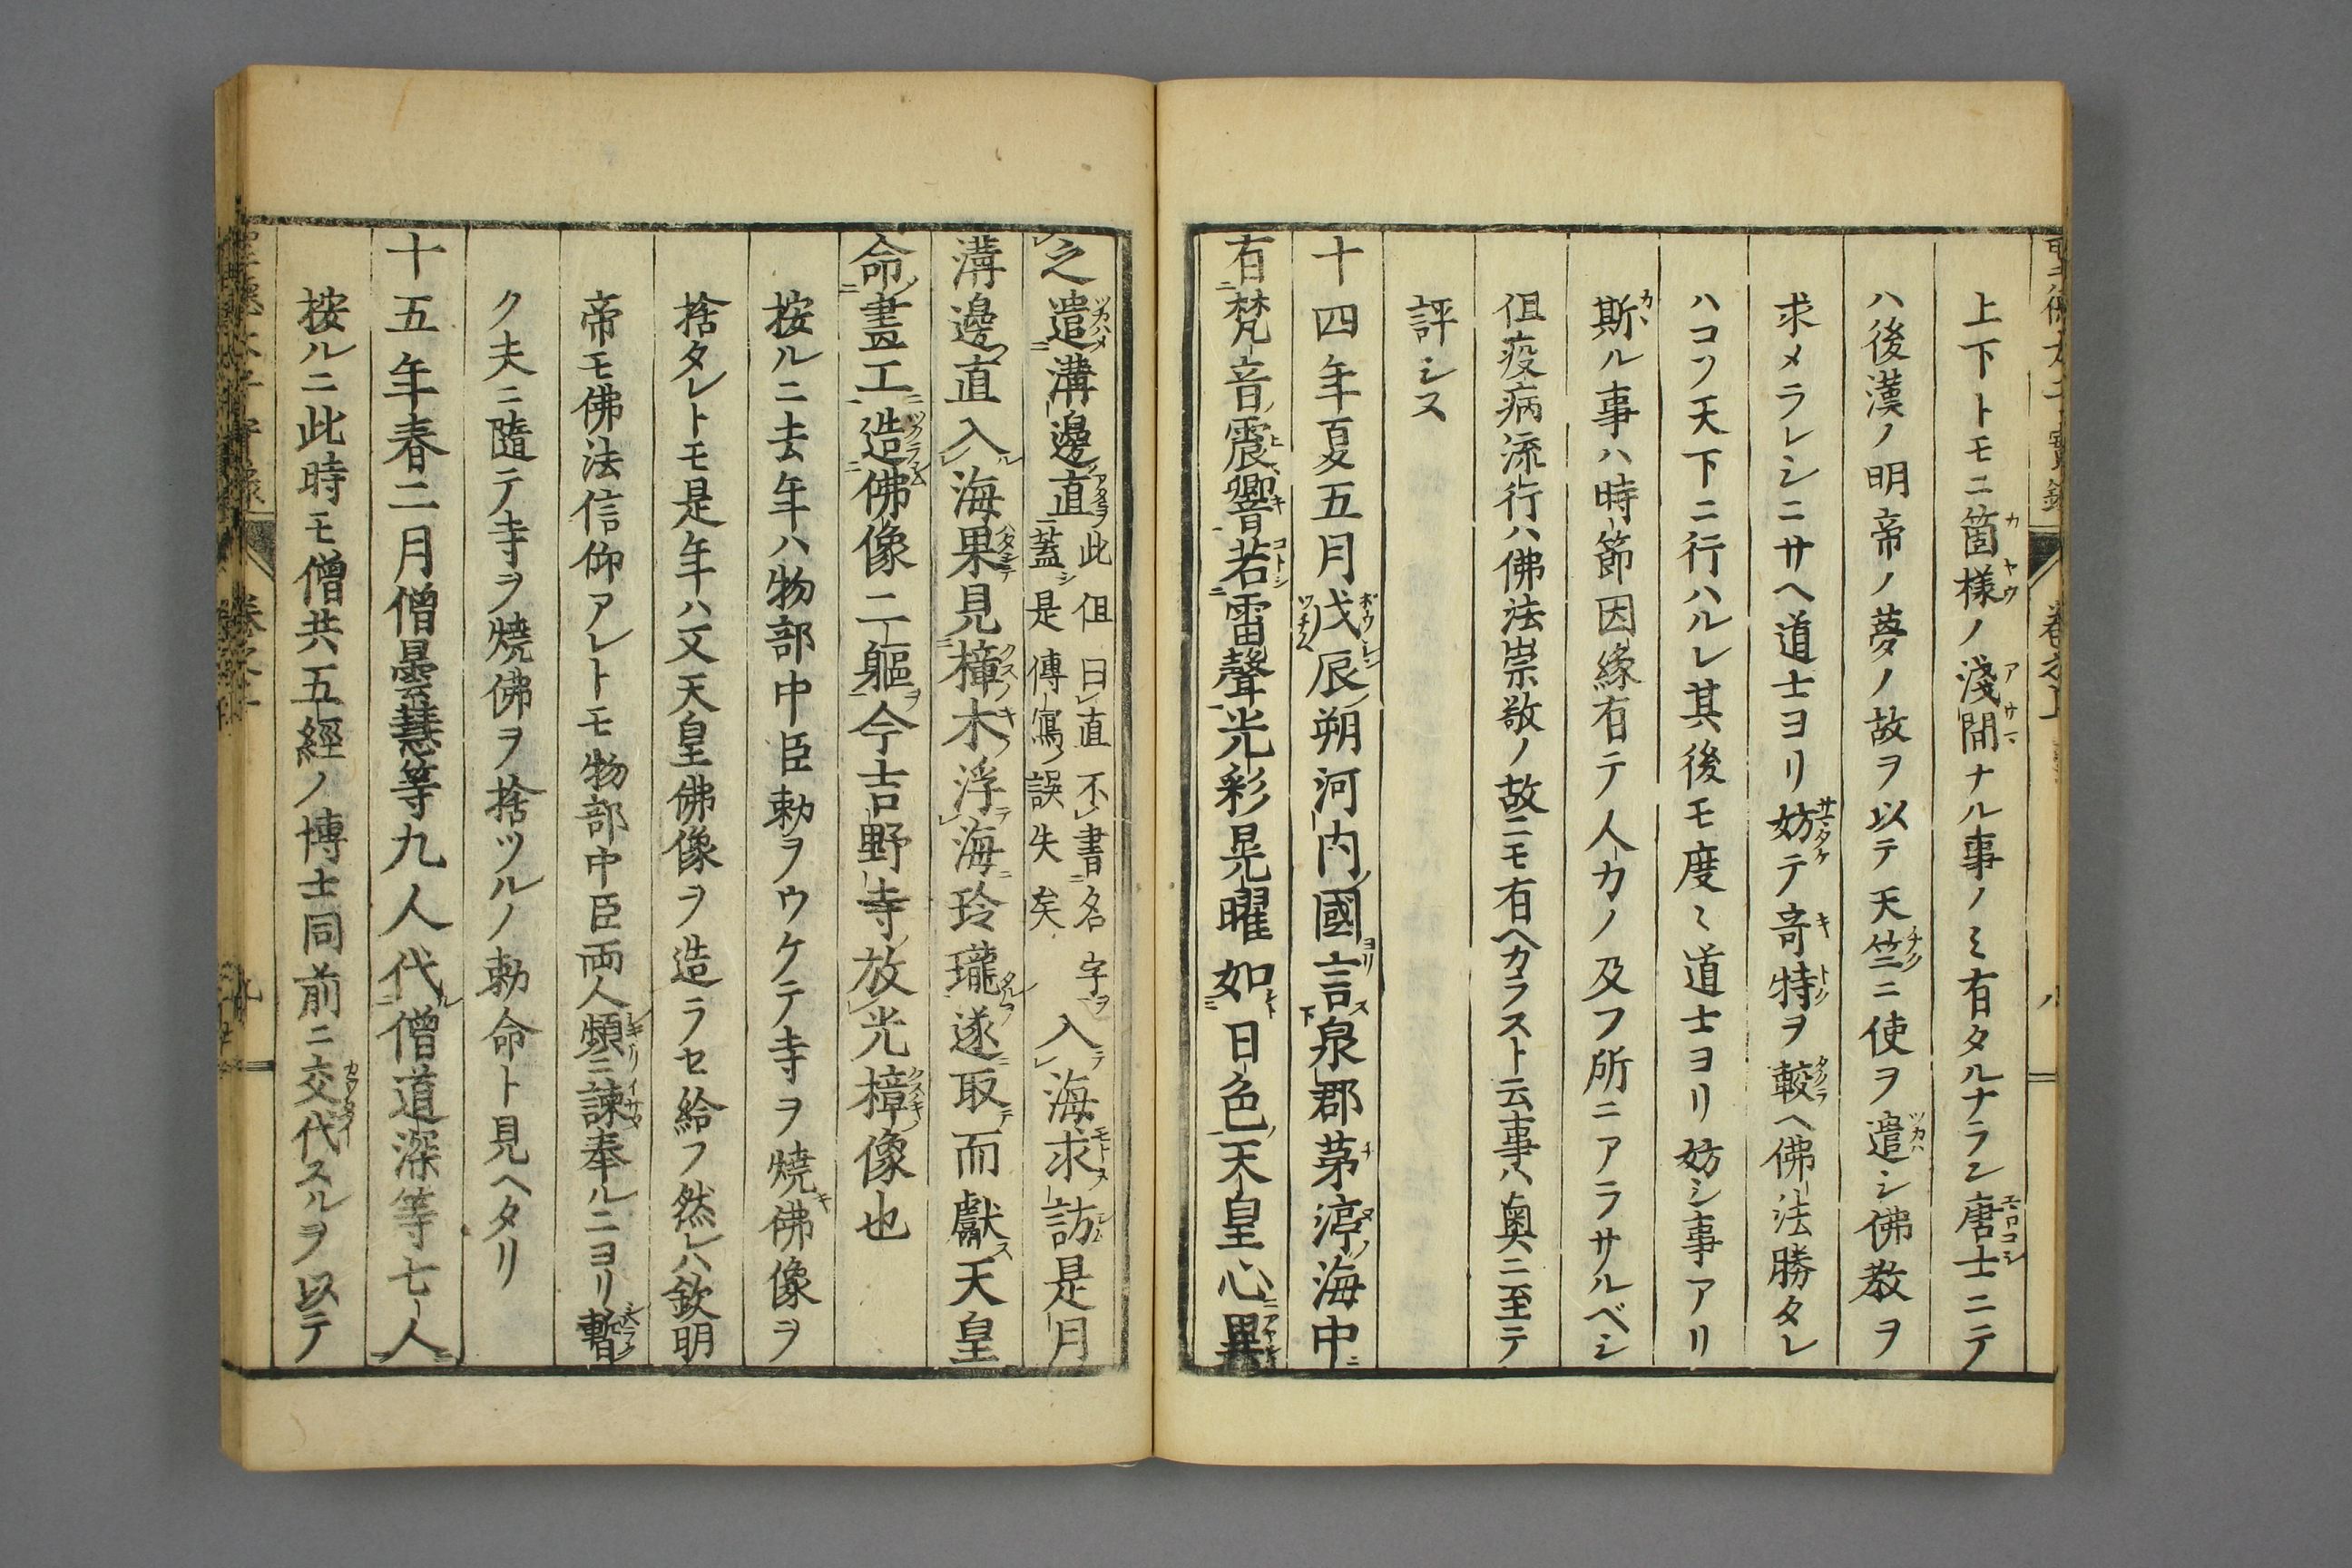 上下トモニ箇様ノ淺間ナル事ノミ有タルナラン唐士ニテ
ハ後漢ノ明帝ノ夢ノ故ヲ以テ天竺ニ使ヲ遣シ佛教ヲ
求メラレシニサヘ道士ヨリ妨テ竒特ヲ較ヘ佛法勝タレ
ハコソ天下ニ行ハルレ其後モ度〻道士ヨリ妨シ事アリ
斯ル事ハ時節因緣有テ人力ノ及フ所ニアラサルベシ
但疫病流行ハ佛法崇敬ノ故ニモ有ヘカラスト云事ハ奥ニ至テ
評シス
十四年夏五月戊辰朔河内國言泉郡茅渟海中
有梵音震響若雷聲光彩晃曜如日色天皇心異
之遣溝邊直此但曰直不書名字蓋是傳寫誤失矣入海求訪是月
溝邊直入海果見樟木浮海玲瓏遂取而獻天皇
命畫工造佛像二軀今吉野寺放光樟像也
按ルニ去年ハ物部中臣勅ヲウケテ寺ヲ燒佛像ヲ
捨タレトモ是年ハ又天皇佛像ヲ造ラセ給フ然レハ欽明
帝モ佛法信仰アレトモ物部中臣両人頻ニ諫奉ルニヨリ暫
ク夫ニ隨テ寺ヲ燒佛ヲ捨ツルノ勅命ト見ヘタリ
十五年春二月僧曇慧等九人代僧道深等七人
按ルニ此時モ僧共五經ノ博士同前ニ交代スルヲ以テ